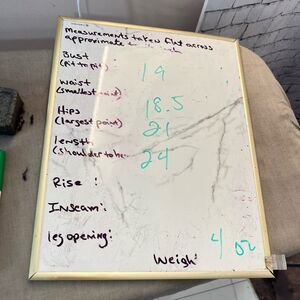 measurements taken flat across
approximate to
Bust
(pit to pit) 19
waist
(smallest 18.5
Hips
(largest point) 21
length
(shoulder to he 24
Rise :
Inseam:
leg opening:
4 oz
Weigh: